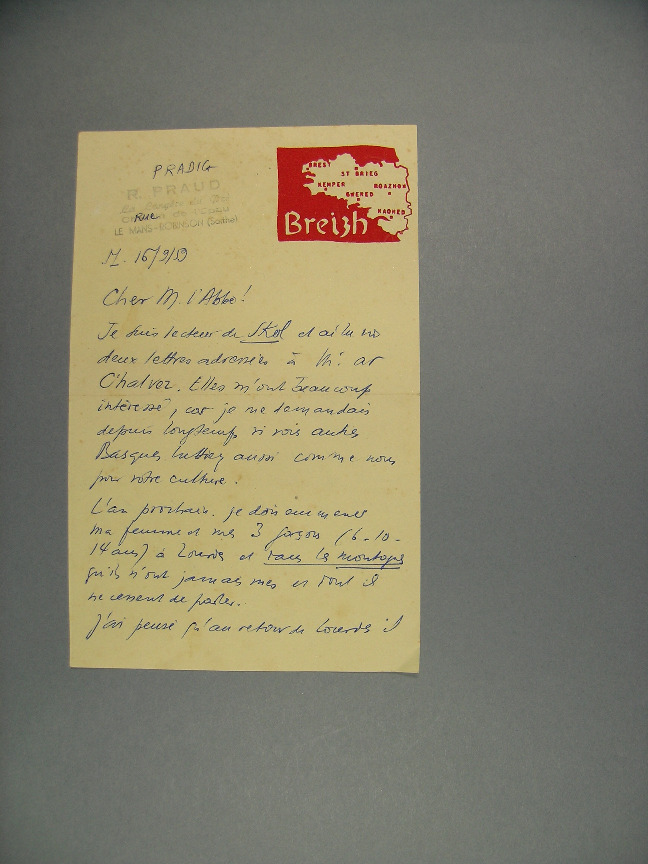 PRADIG
R. PRAUD
Rue
LE MANS-ROBINSON (Sarthe)
BREST
ST BRIEG
KEMPER
ROAZHON
GWENED
NAONED
Breizh
M. 16/9/59
Cher M. l'Abbé!
Je suis lecteur de Skol et ai lu vos
deux lettres adressées à Mr. ar
C'halvez. Elles m'ont beaucoup
intéressé, car je me demandais
depuis longtemps si vois autres
Basques luttiez aussi comme nous
pour votre culture.
L'an prochain je dois emmener
ma femme et mes 3 garçons (6-10-
14 ans) à Lourdes et dans les montagnes
qu'ils n'ont jamais vues et dont il
ne cessent de parler.
J'ai pensé qu'au retour de Lourdes il